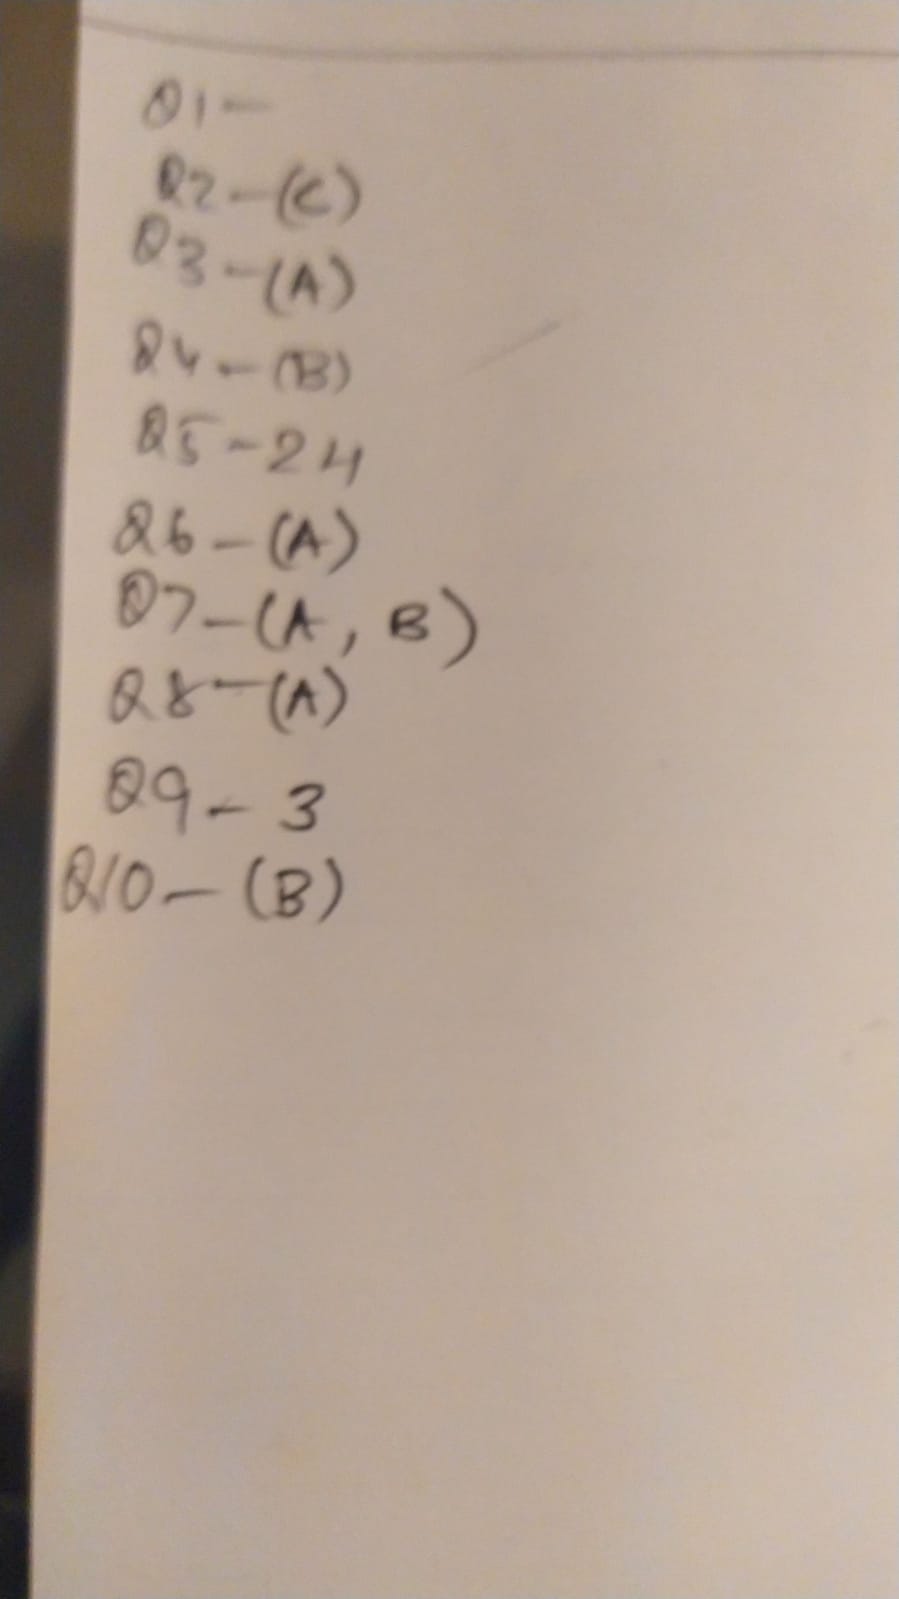 Q1-
Q2-(C)
Q3-(A)
Q4-(B)
Q5-24
Q6-(A)
Q7-(A, B)
Q8-(A)
Q9-3
Q10-(B)